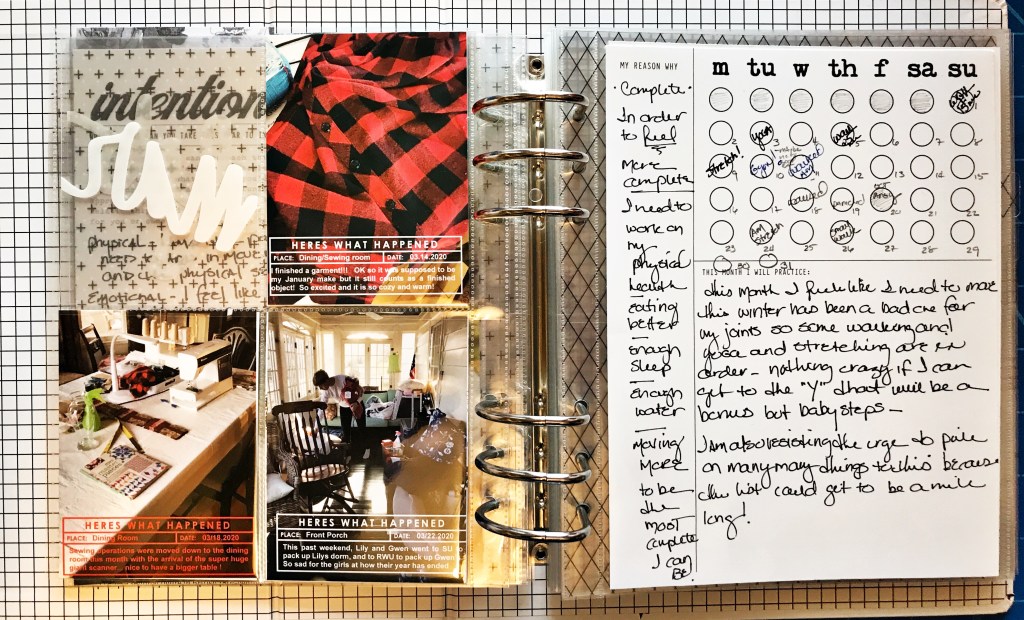 intention
slam
physical
need to
and
emotional
HERES WHAT HAPPENED
PLACE: Dining/Sewing room DATE: 03.14.2020
I finished a garment!!! OK so it was supposed to be
my January make but it still counts as a finished
object! So excited and it is so cozy and warm!
HERES WHAT HAPPENED
PLACE: Dining Room DATE: 03/18.2020
Sewing operations were moved down to the dining
room this month with the arrival of the super huge
giant scanner... nice to have a bigger table !
HERES WHAT HAPPENED
PLACE: Front Porch DATE: 03/22.2020
This past weekend, Lily and Gwen went to SU to
pack up Lilys dorm, and to RWU to pack up Gwen
So sad for the girls at how their year has ended
MY REASON WHY
·Complete·
In order
to feel
more
complete
I need to
work on
my
physical
health
eating
better
enough
sleep
enough
water
moving
more
to be
the
most
complete
I can
be!
m tu w th f sa su
1
yoga
2 3 4 5 6 7 8
stretch!
9 10 11 12 13 14 15
16 17 18 19 20 21 22
Am stretch
23 24 25 26 27 28 29
30 31
THIS MONTH I WILL PRACTICE:
this month I feel like I need to move
this winter has been a bad one for
my joints so some walking and
yoga and stretching are in
order - nothing crazy if I can
get to the "Y" that will be a
bonus but baby steps -
I am also resisting the urge to pile
on many many things to this because
the list could get to be a mile
long!